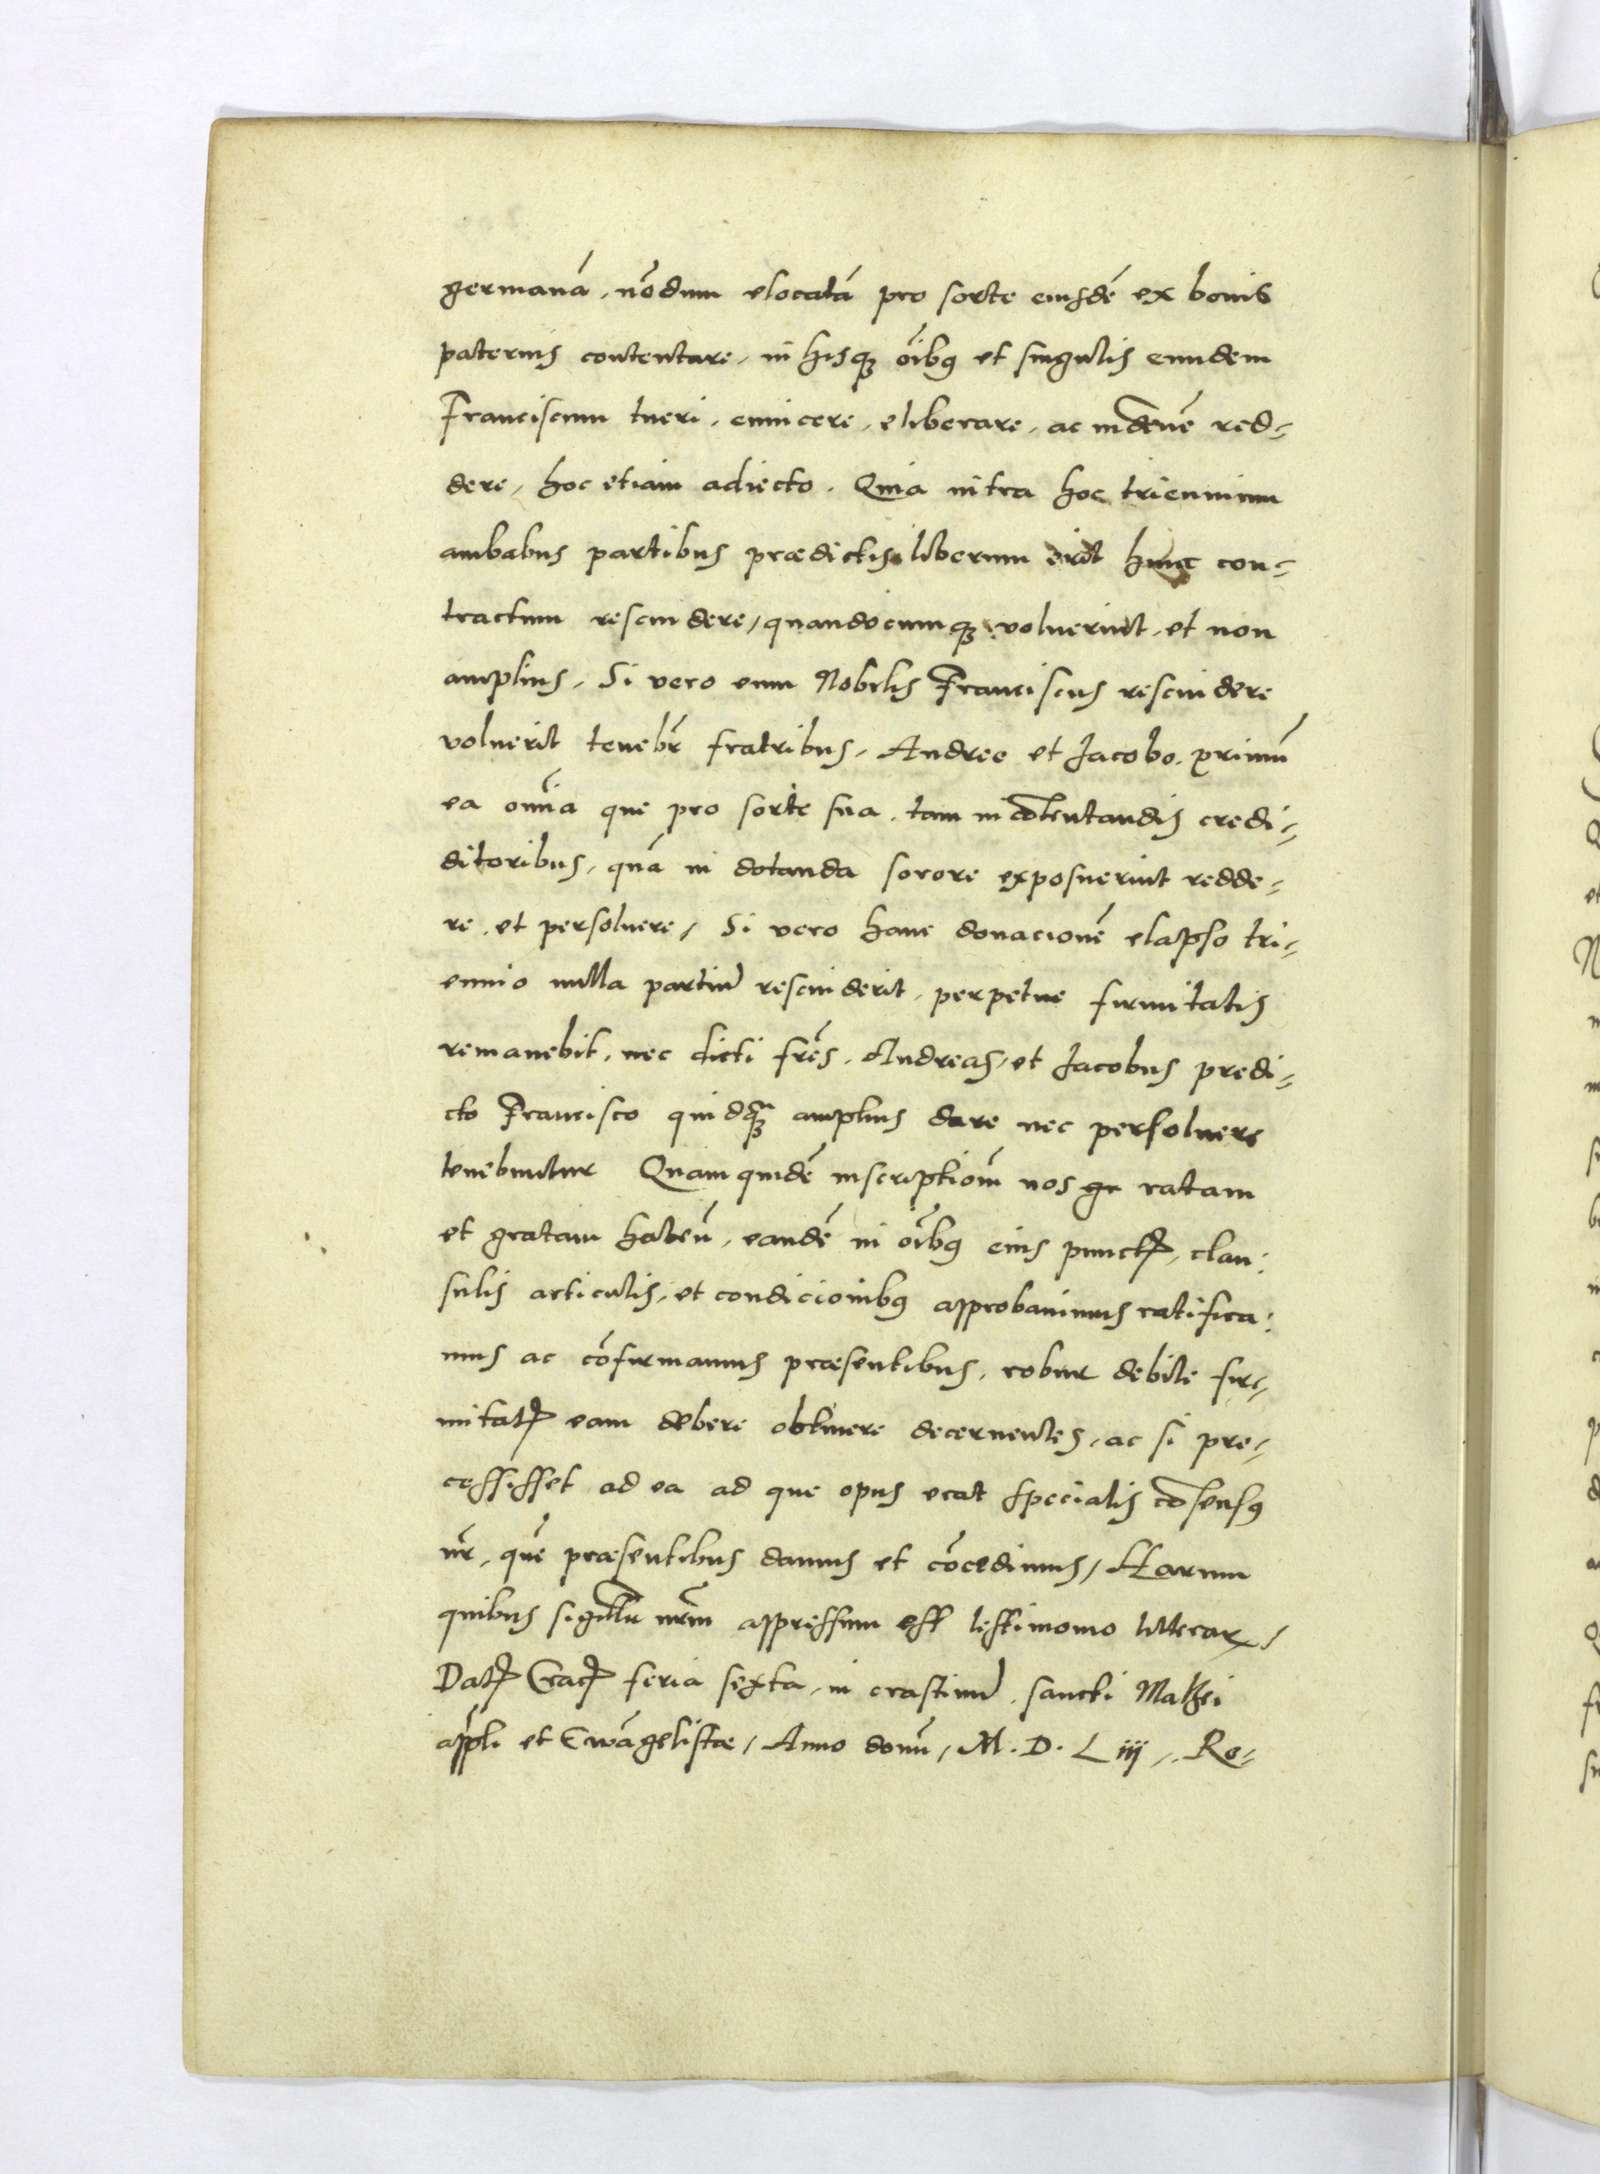 germanā, nōdum elocatā pro sorte eiusdē ex bonis
paternis contentare, in hisq3 oībꝯ et singulis eundem
Franciscum tueri, euincere, eliberare, ac indenē red=
dere, hoc etiam adiecto. Quia intra hoc triennium
ambabus partibus prædictis liberum erit hunc con=
tractum rescindere, quandocumq3 voluerint, et non
amplius, Si vero eum Nobilis Franciscus rescindere
voluerit tenebr̄ fratribus, Andree et Jacobo, primū
ea om̄ia que pro sorte sua, tam in cōtentandis credi=
ditoribus, quā in dotanda sorore exposuerint redde=
re, et persoluere, Si vero hanc donacionē elapso tri=
ennio nulla partiū rescinderit, perpetue firmitatis
remanebit, nec dicti fr̄es, Andreas, et Jacobus predi=
cto Francisco quidq3 amplius dare nec persoluere
tenebuntur Quam quidē inscriptionē nos gr ratam
et gratam habeñ, eandē in oībꝯ eius punctꝭ, clau:
sulis articulis, et condicionibꝯ approbauimus ratifica:
mus ac cōfirmamus præsentibus, robur debite fir=
mitatꝭ eam debere obtinere decernentes, ac si pre=
cessisset ad ea ad que opus erat specialis cōsensꝯ
nr̄, quē præsentibus damus et cōcedimus, Harum
quibus sigillū nr̄m appressum est testimonio litterarꝝ,
Datꝭ Cracꝭ feria sexta, in crastinū, sancti Mathei
ap̄li et Ewāgelistæ, Anno domī, M. D. Liij,. Re=